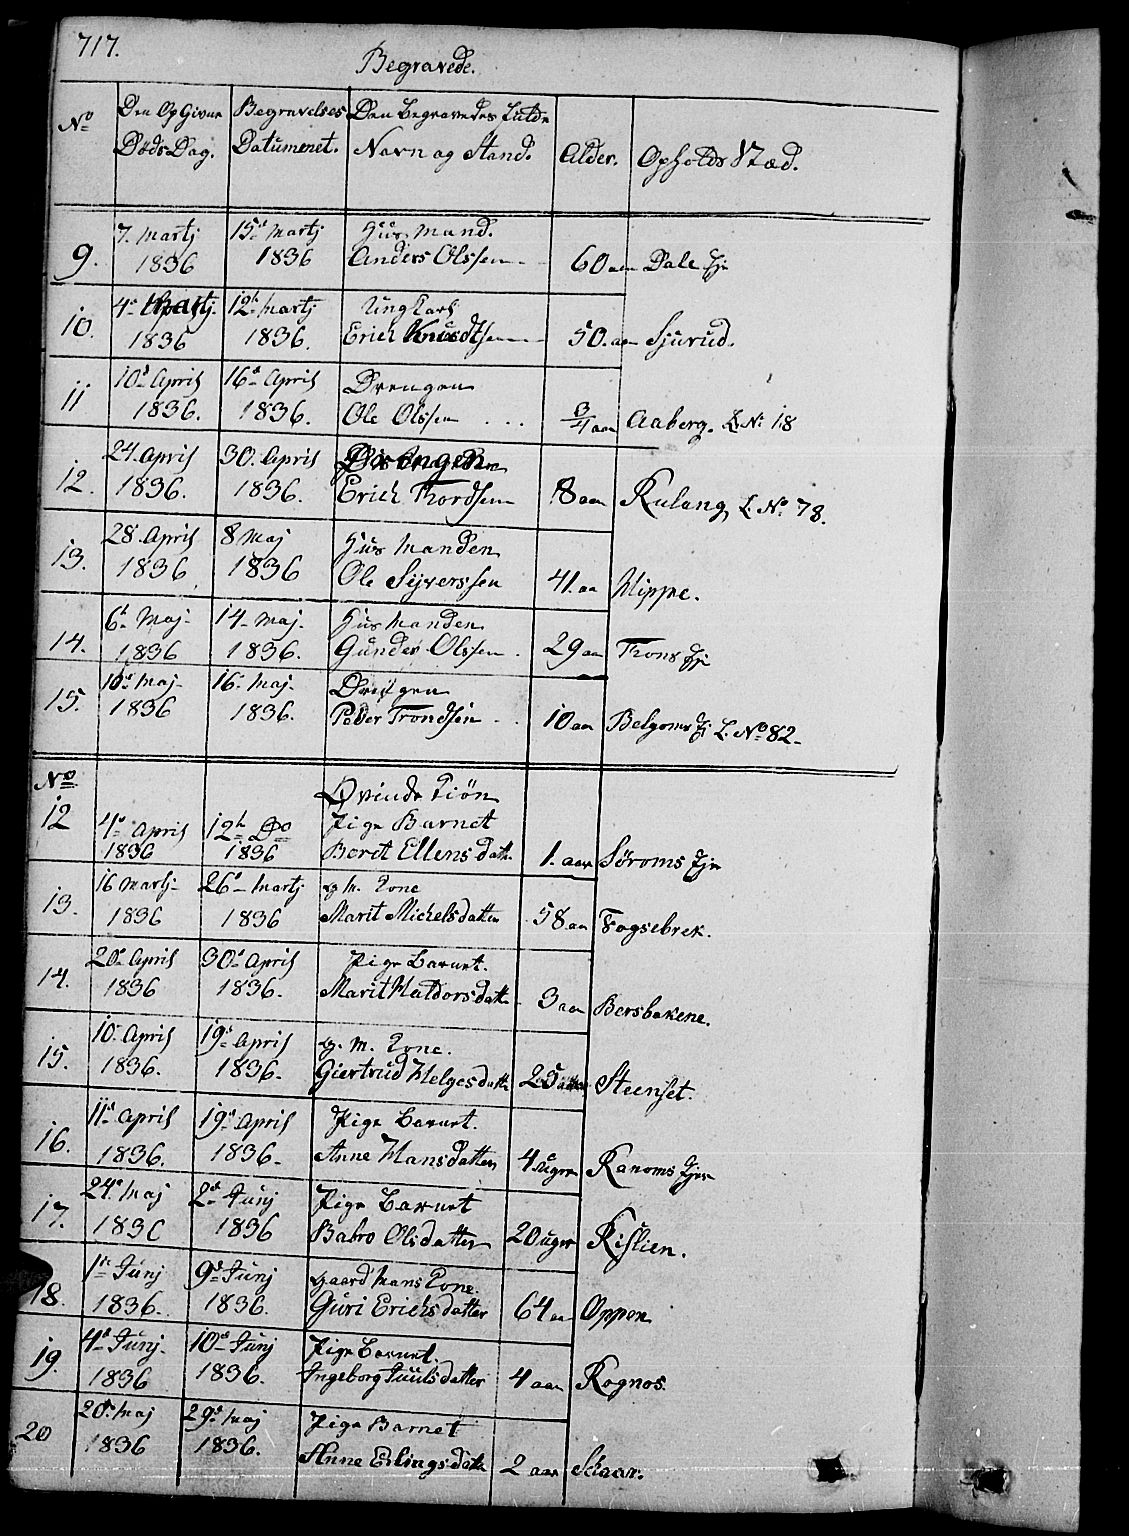 717.
Begravede.
No Den OpGivne DødsDag. Begravelses Datumenet. Den Begravedes Navn og Stand. Alder. Opholds Stæd.
9. 7. Martj 1836 15d Martj 1836 Huus Mand. Anders Olssen 60 aar Dale Eje
10. 4d Martj. 1836 12h Martj 1836. Ung Karl Erich Knudtsen 50. aar Sjurud.
11 10d April 1836. 16d April 1836. Drengen Ole Olssen 3/4 aar Aaberg. L No 18
12. 24. April 1836. 30. April 1836. Drengen Erich Thordsen 8 aar Kulang, L. No. 78.
13. 28. April 1836 8 Maj 1836 Huus Manden Ole Sijverssen 41. aar Wippe.
14. 6d Maj. 1836 14. Maj. 1836. Huus Manden Gunder Olssen 29 aar Trons Eje
15. 10d Maj. 1836 16. Maj. 1836. Drengen Peder Trondsen 10 aar Belgoms Ej L. No. 82
No Qvinde Kiøn
12 4d April 1836 12h Do 1836 Pige Barnet Beret Ellens datr. 1. aar Søroms Eje
13. 16 Martj 1836 26d Martj 1836 g M. Kone Marit Michelsdatter 58 aar Fogsebrek.
14. 20d April 1836 30d April 1836. Pige Barnet. Marit Haldorsdatter 3 aar Bersbakene.
15. 10. April 1836. 19d April 1836. g. M. Kone. Giertrud Helgesdatter 25 aar Steenset.
16. 11d April 1836. 19d April 1836. Pige Barnet. Anne Hansdatter 4 uger Ranoms Eje
17. 24d Maj 1836 2d Junj 1836 Pige Barnet Babro Olsdatter 20 uger Rislien.
18. 1d Junj 1836. 9d Junj 1836. Gaard Mans Kone Guri Erichsdatter 64 aar Oppen
19. 4d Junj. 1836 10d Junj 1836. Pige Barnet. Ingeborg Juulsdatter 4 aar Rognos.
20 20d Maj 1836 29d Maj 1836. Pige Barnet Anne Erlingsdatr 2 aar Skaar.